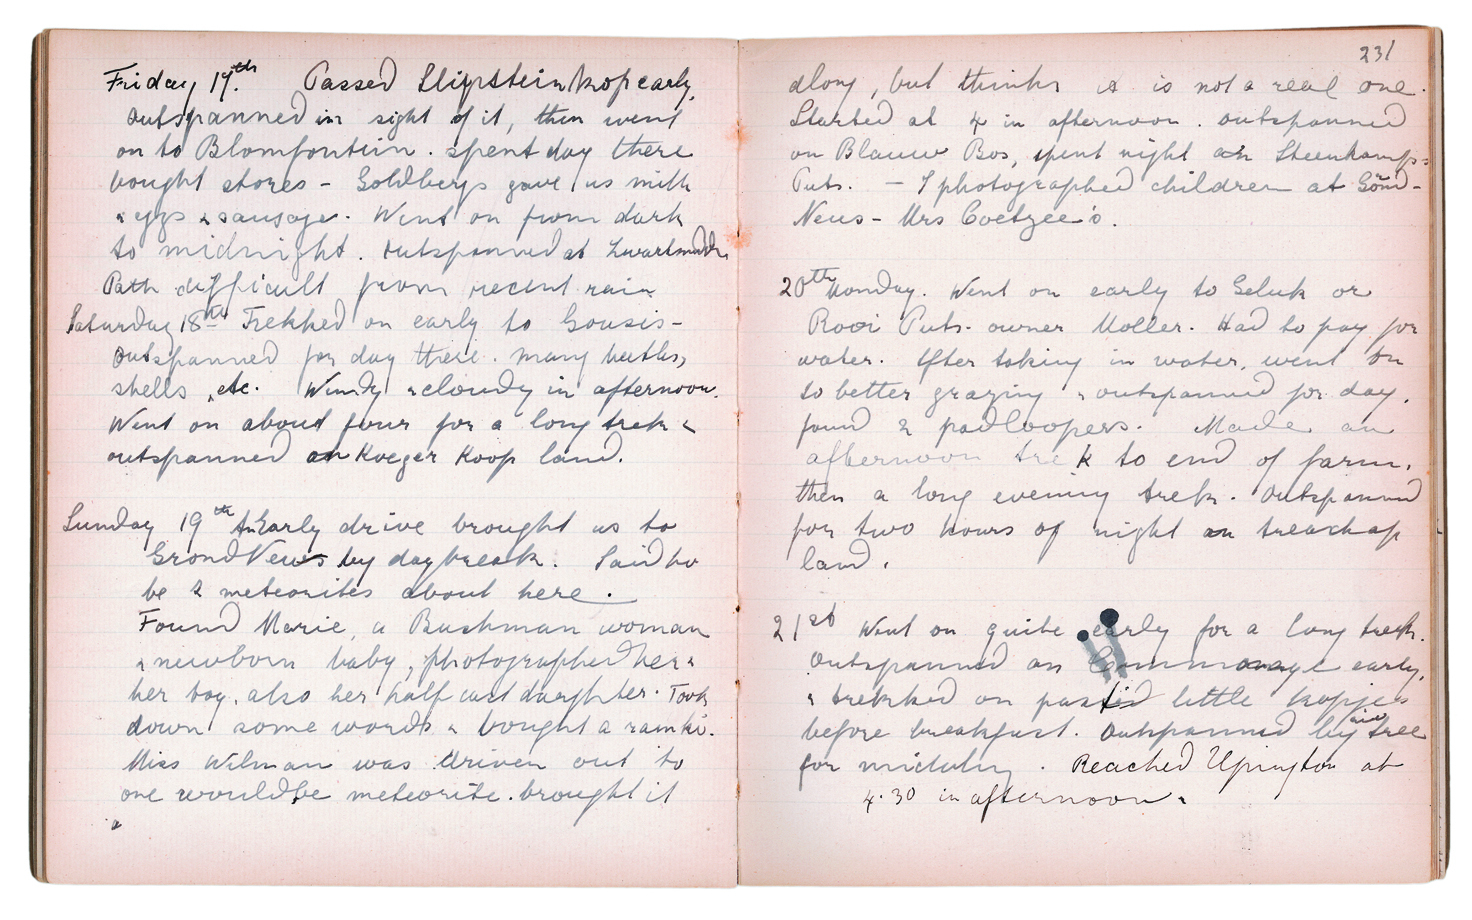 Friday 17th. Passed Slipsteinkop early,
outspanned in sight of it, then went
on to Blomfontein. spent day there
bought stores - Goldbergs gave us milk
& eggs & sausage. Went on from dark
to midnight. outspanned at Zwartmodder
Path difficult from recent rain
Saturday 18th Trekked on early to Gousis-
outspanned for day there. many beetles,
shells, etc. Windy & cloudy in afternoon.
Went on about four for a long trek &
outspanned on Koeger Koop land.
Sunday 19th Early drive brought us to
Grond Neus by daybreak. Said to
be 2 meteorites about here.
Found Marie, a Bushman woman
& newborn baby, photographed her &
her boy, also her half cast daughter. Took
down some words & bought a ramki.
Miss Wilman was driven out to
one would be meteorite. brought it
231
along, but thinks it is not a real one.
Started at 4 in afternoon. outspanned
on Blauw Bos, spent night on Steenkamps-
Puts. - I photographed children at Gond-
Neus - Mrs Coetzee's.
20th Monday. Went on early to Geluk or
Rooi Puts- owner Moller. Had to pay for
water. After taking in water, went on
to better grazing & outspanned for day.
found 2 padloopers. Made an
afternoon trek to end of farm,
then a long evening trek. Outspanned
for two hours of night on treachap
land.
21st Went on quite early for a long trek.
Outspanned on Commonage early,
& trekked on past little kopjes
before breakfast. Outspanned by tree
for midday. Reached Upington at
4.30 in afternoon.